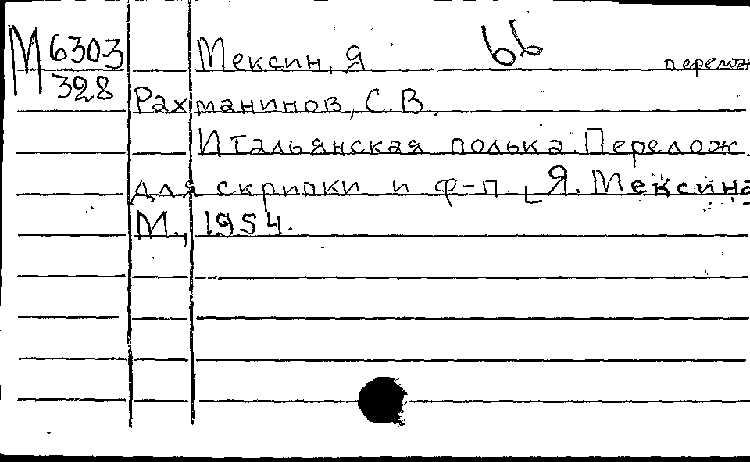 М 6303 Мексин, Я 66 перелож
328
Рахманинов, С. В.
Итальянская полька. Перелож.
для скрипки и ф-п [Я. Мексина
М., 1954.